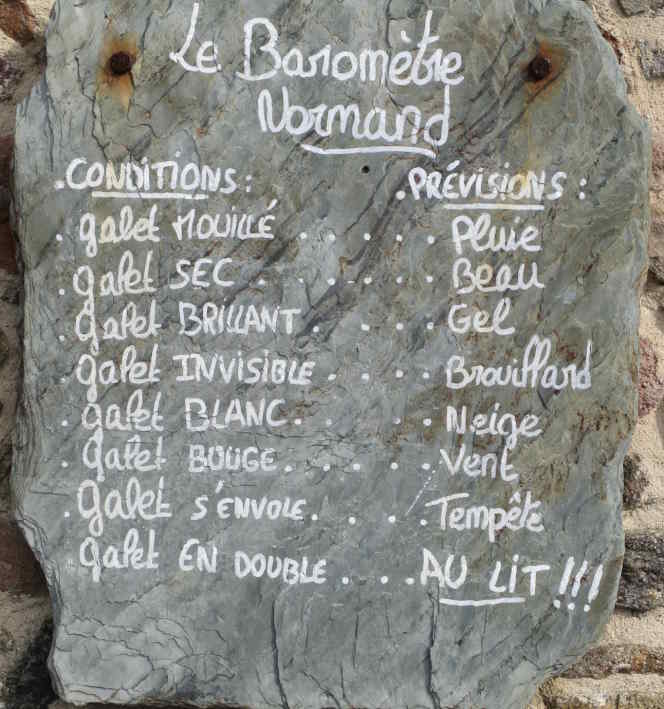 Le Baromètre
Normand
. CONDITIONS : . PRÉVISIONS :
. galet MOUILLÉ . . . . . Pluie
. galet SEC . . . . . . Beau
. galet BRILLANT . . . . Gel
. galet INVISIBLE . . . . Brouillard
. galet BLANC . . . . . Neige
. galet BOUGE . . . . . Vent
. galet S'ENVOLE . . . . Tempête
galet EN DOUBLE . . . . AU LIT !!!